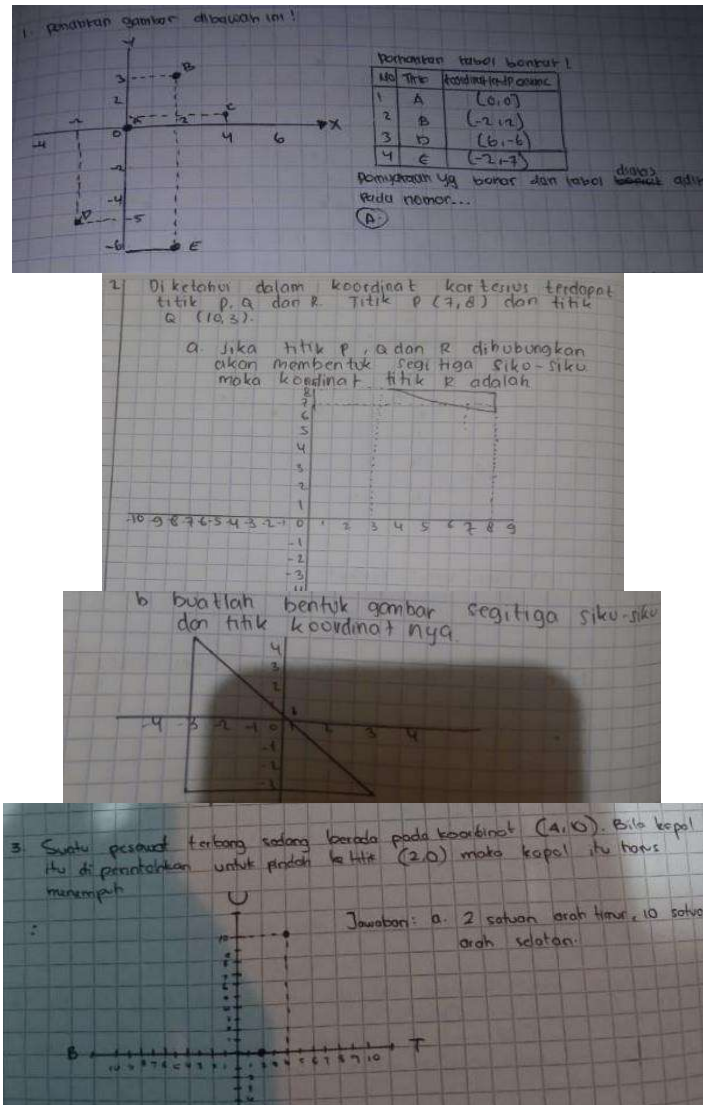 1. gambar dibawah ini!
Y
3
B
2
C
X
-4
0
2
4
6
-2
-4
D
-5
-6
E
Perhatikan tabel berikut!
No Titik
1 A (0,0)
2 B (-2,2)
3 D (6,-6)
4 E (-2,-7)
yg benar dan tabel diatas
Pada nomor...
A.
2 Diketahui dalam koordinat kartesius terdapat
titik P, Q dan R. Titik P (7,8) dan titik
Q (10,3).
a. Jika titik P, Q dan R dihubungkan
akan membentuk segitiga siku-siku
maka koordinat titik R adalah
8
7
6
5
4
3
2
1
-10 9 8 7 6 -5 -4 -3 -2 -1 0 1 2 3 4 5 6 7 8 9
-1
-2
-3
b buatlah bentuk gambar segitiga siku-siku
dan titik koordinat nya.
4
3
2
-4 -3 -2 -1 0 1 2 3 4
-1
-2
-3
3. Suatu pesawat terbang sedang berada pada koordinat (4,10). Bila kapal
itu di perintahkan untuk pindah ke titik (2,0) maka kapal itu harus
menempuh
U
Jawaban: a. 2 satuan arah timur, 10 satua
arah selatan.
10
B
T